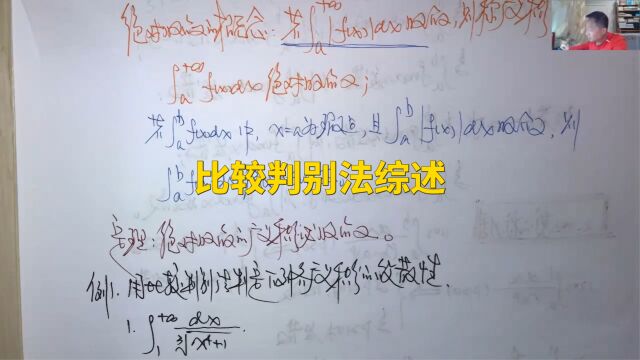 绝对收敛的概念：若∫ₐ^{+∞}|f(x)|dx收敛，则称广义积
∫ₐ^{+∞}f(x)dx绝对收敛；
若∫ₐᵇf(x)dx中，x=a为瑕点，且∫ₐᵇ|f(x)|dx收敛，则
∫ₐᵇf
比较判别法综述
定理：绝对收敛的广义积分必收敛。
例1. 用比较判别法判定下列广义积分的敛散性.
1. ∫₁^{+∞} dx/∛(x⁴+1)